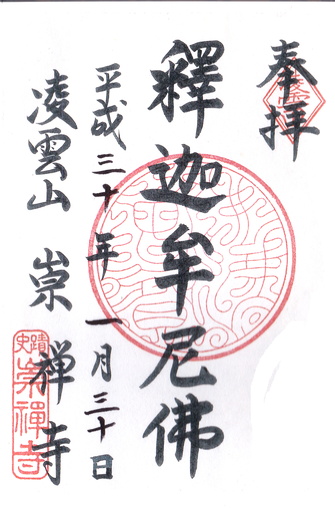 奉拝
釋迦牟尼佛
平成三十年一月三十日
凌雲山 崇禅寺
史蹟
崇禪寺